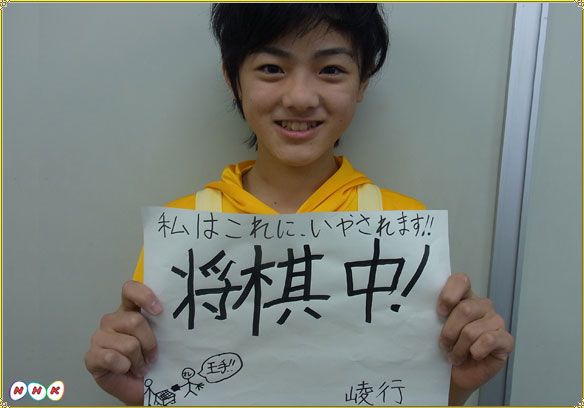 私はこれに、いやされます!!
将棋中!
王手!!
崚行
NHK